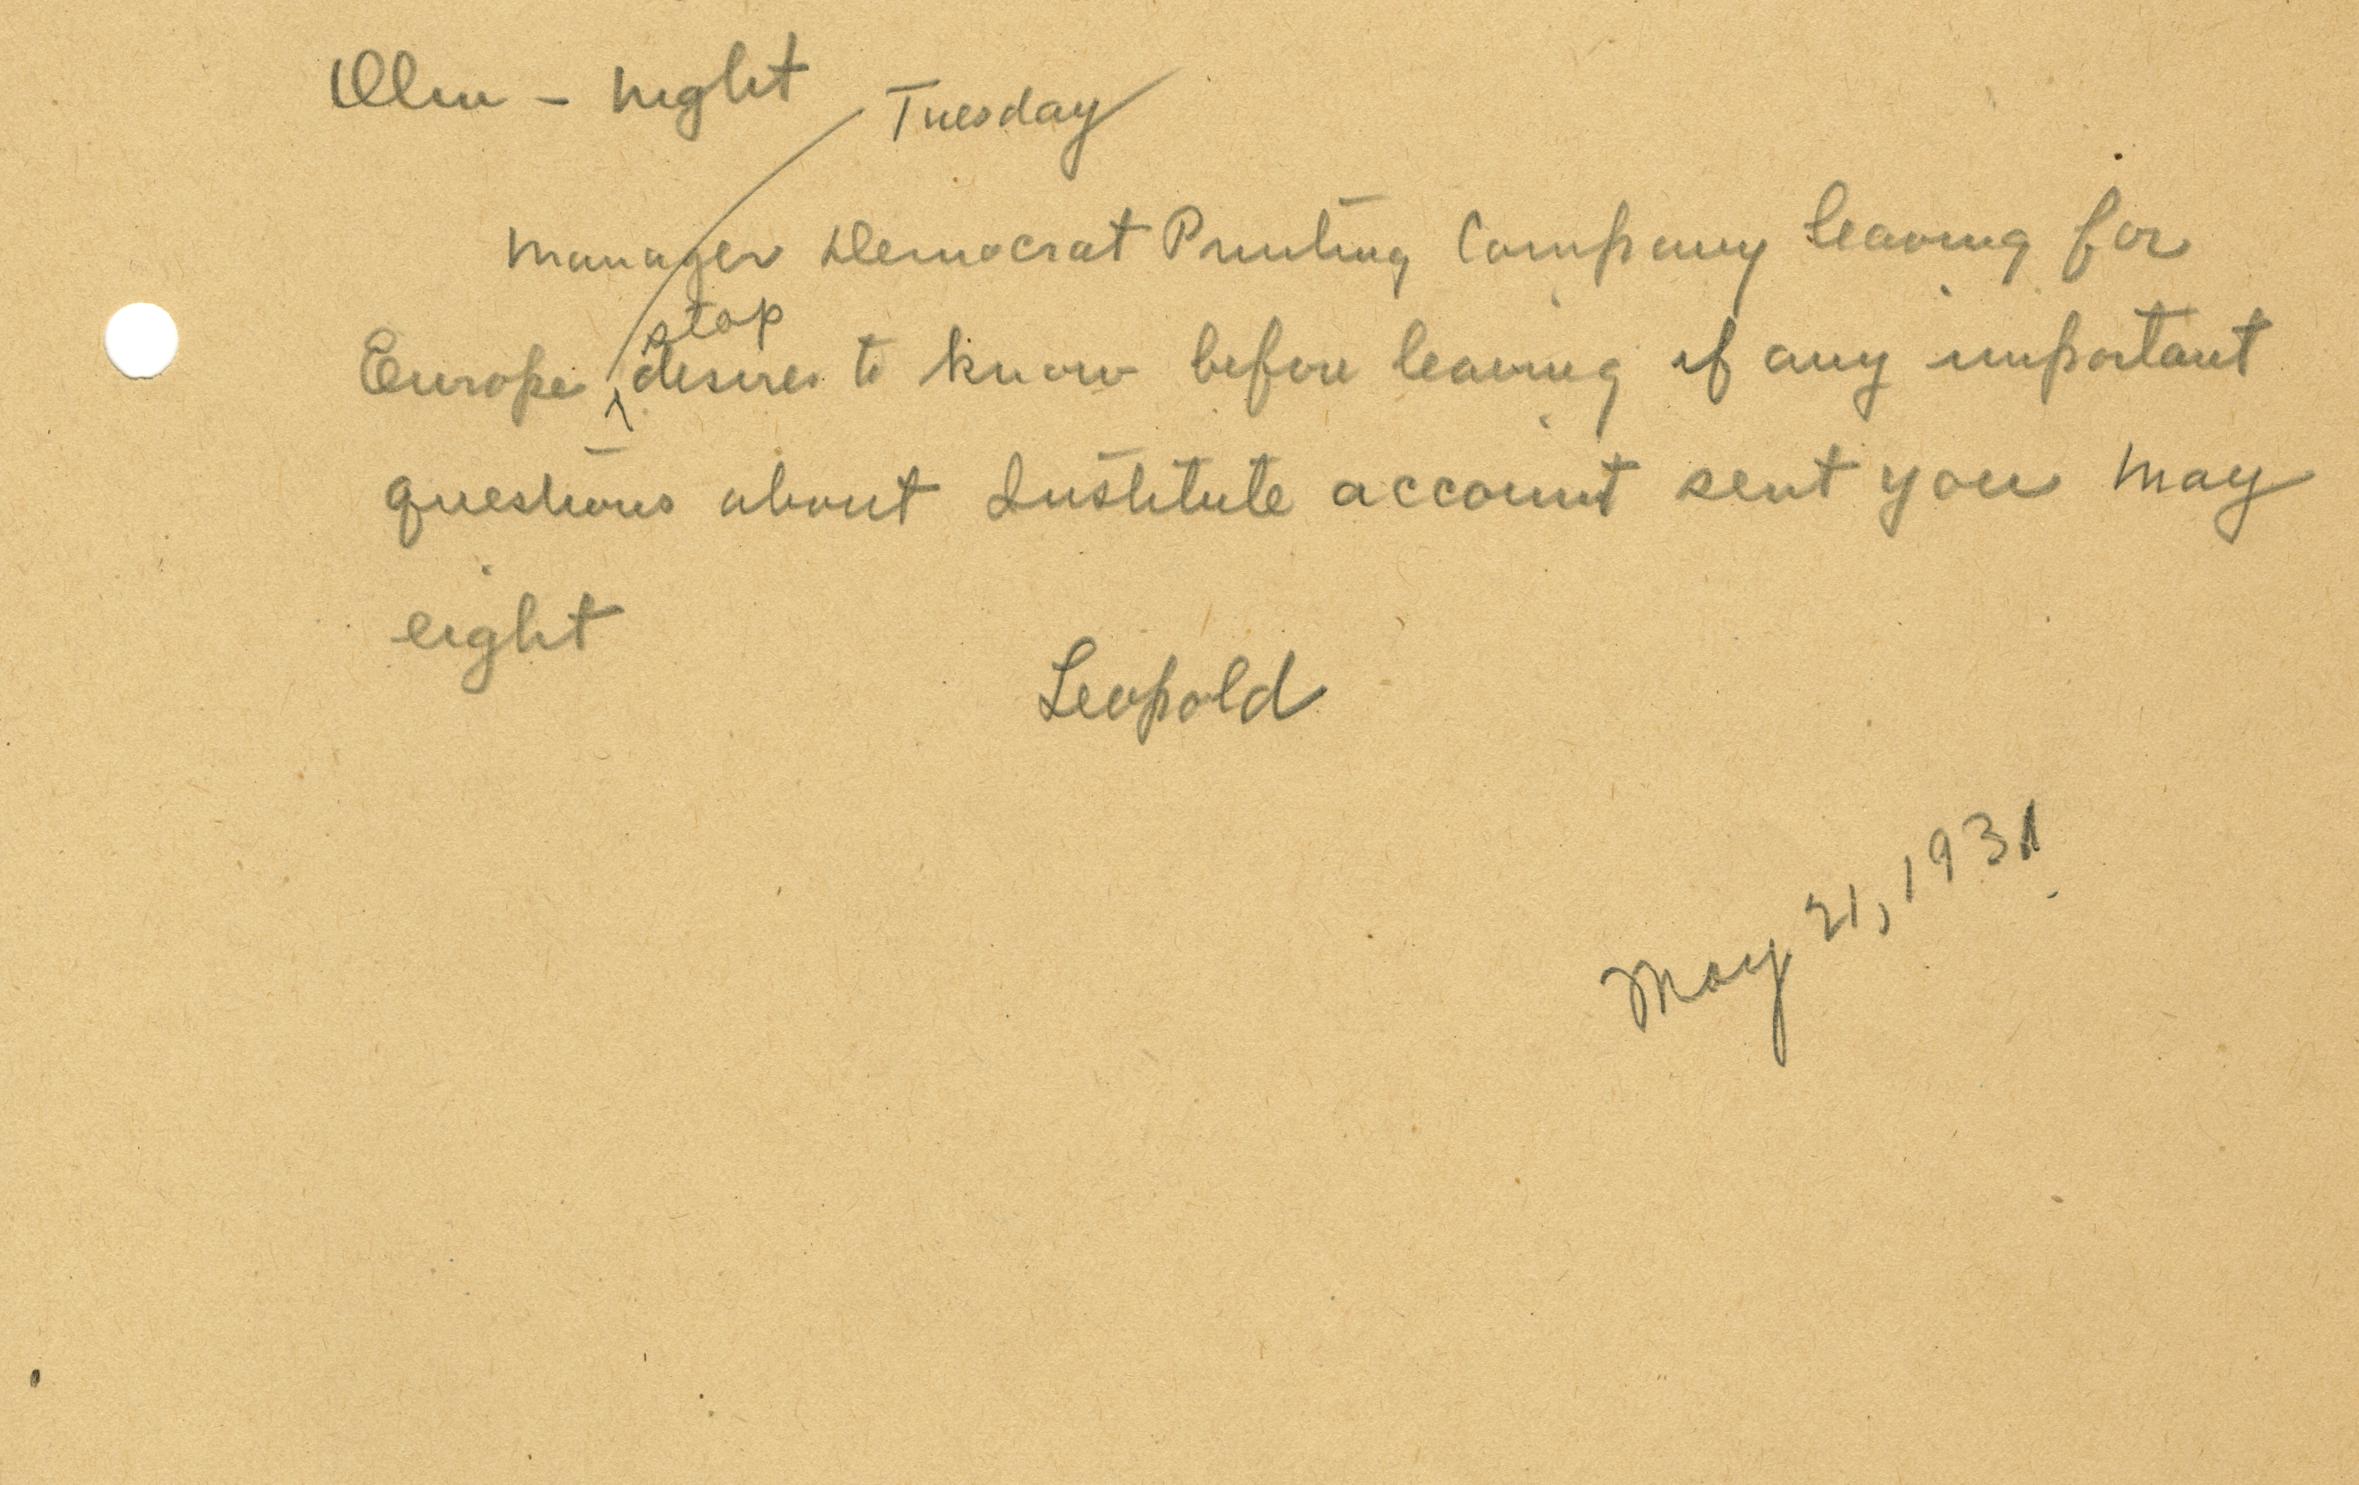 Olin - night
Tuesday
Manager Democrat Printing Company leaving for
stop
Europe desires to know before leaving if any important
questions about Institute account sent you May
eight
Leopold
May 21, 1931